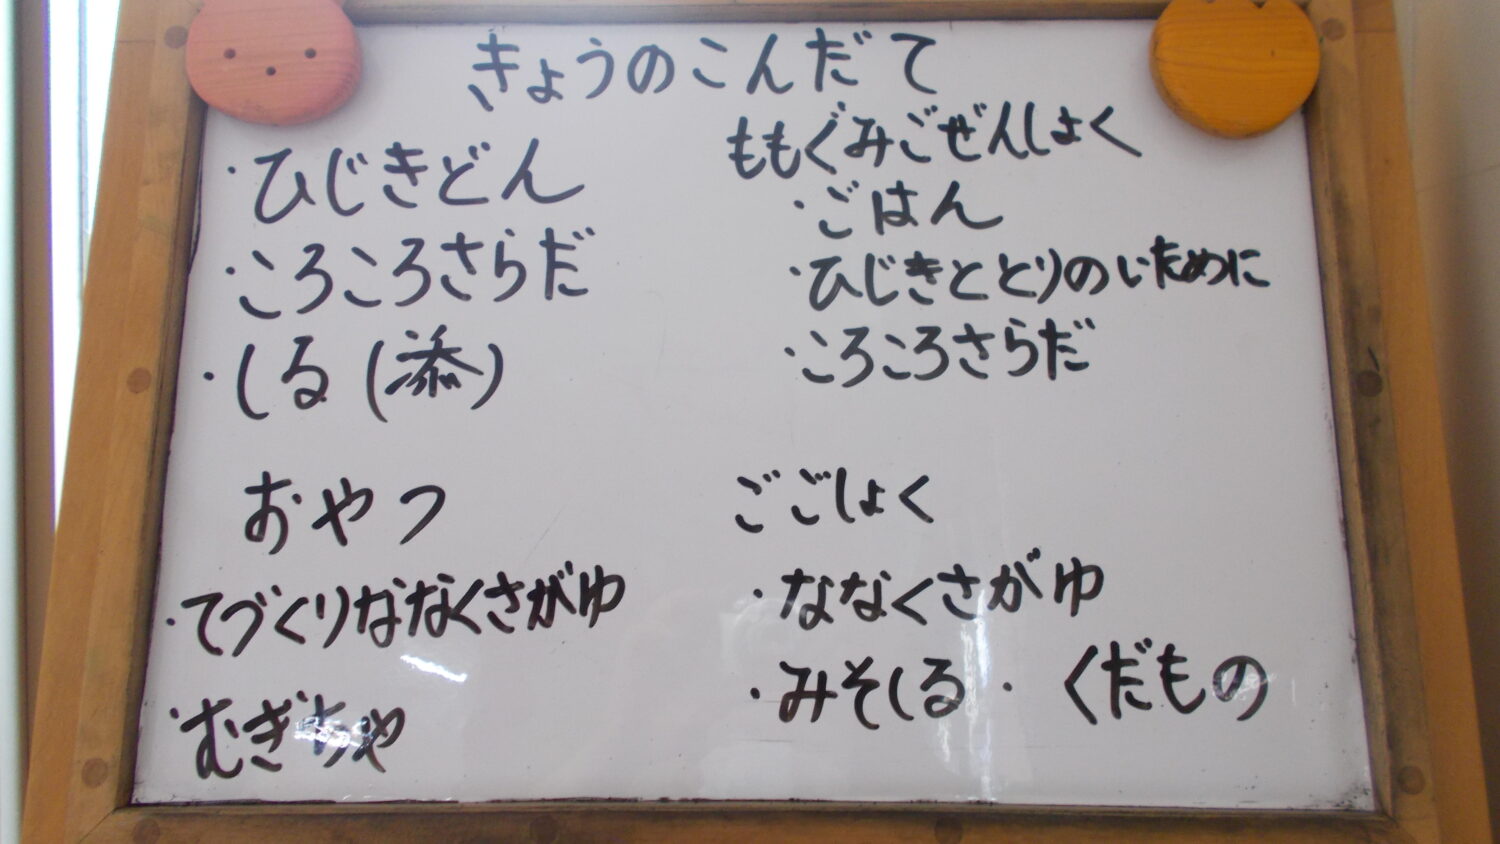 きょうのこんだて
・ひじきどん
・ころころさらだ
・しる(添)
ももぐみごぜんしょく
・ごはん
・ひじきととりのいために
・ころころさらだ
おやつ
・てづくりななくさがゆ
・むぎちゃ
ごごしょく
・ななくさがゆ
・みそしる ・ くだもの